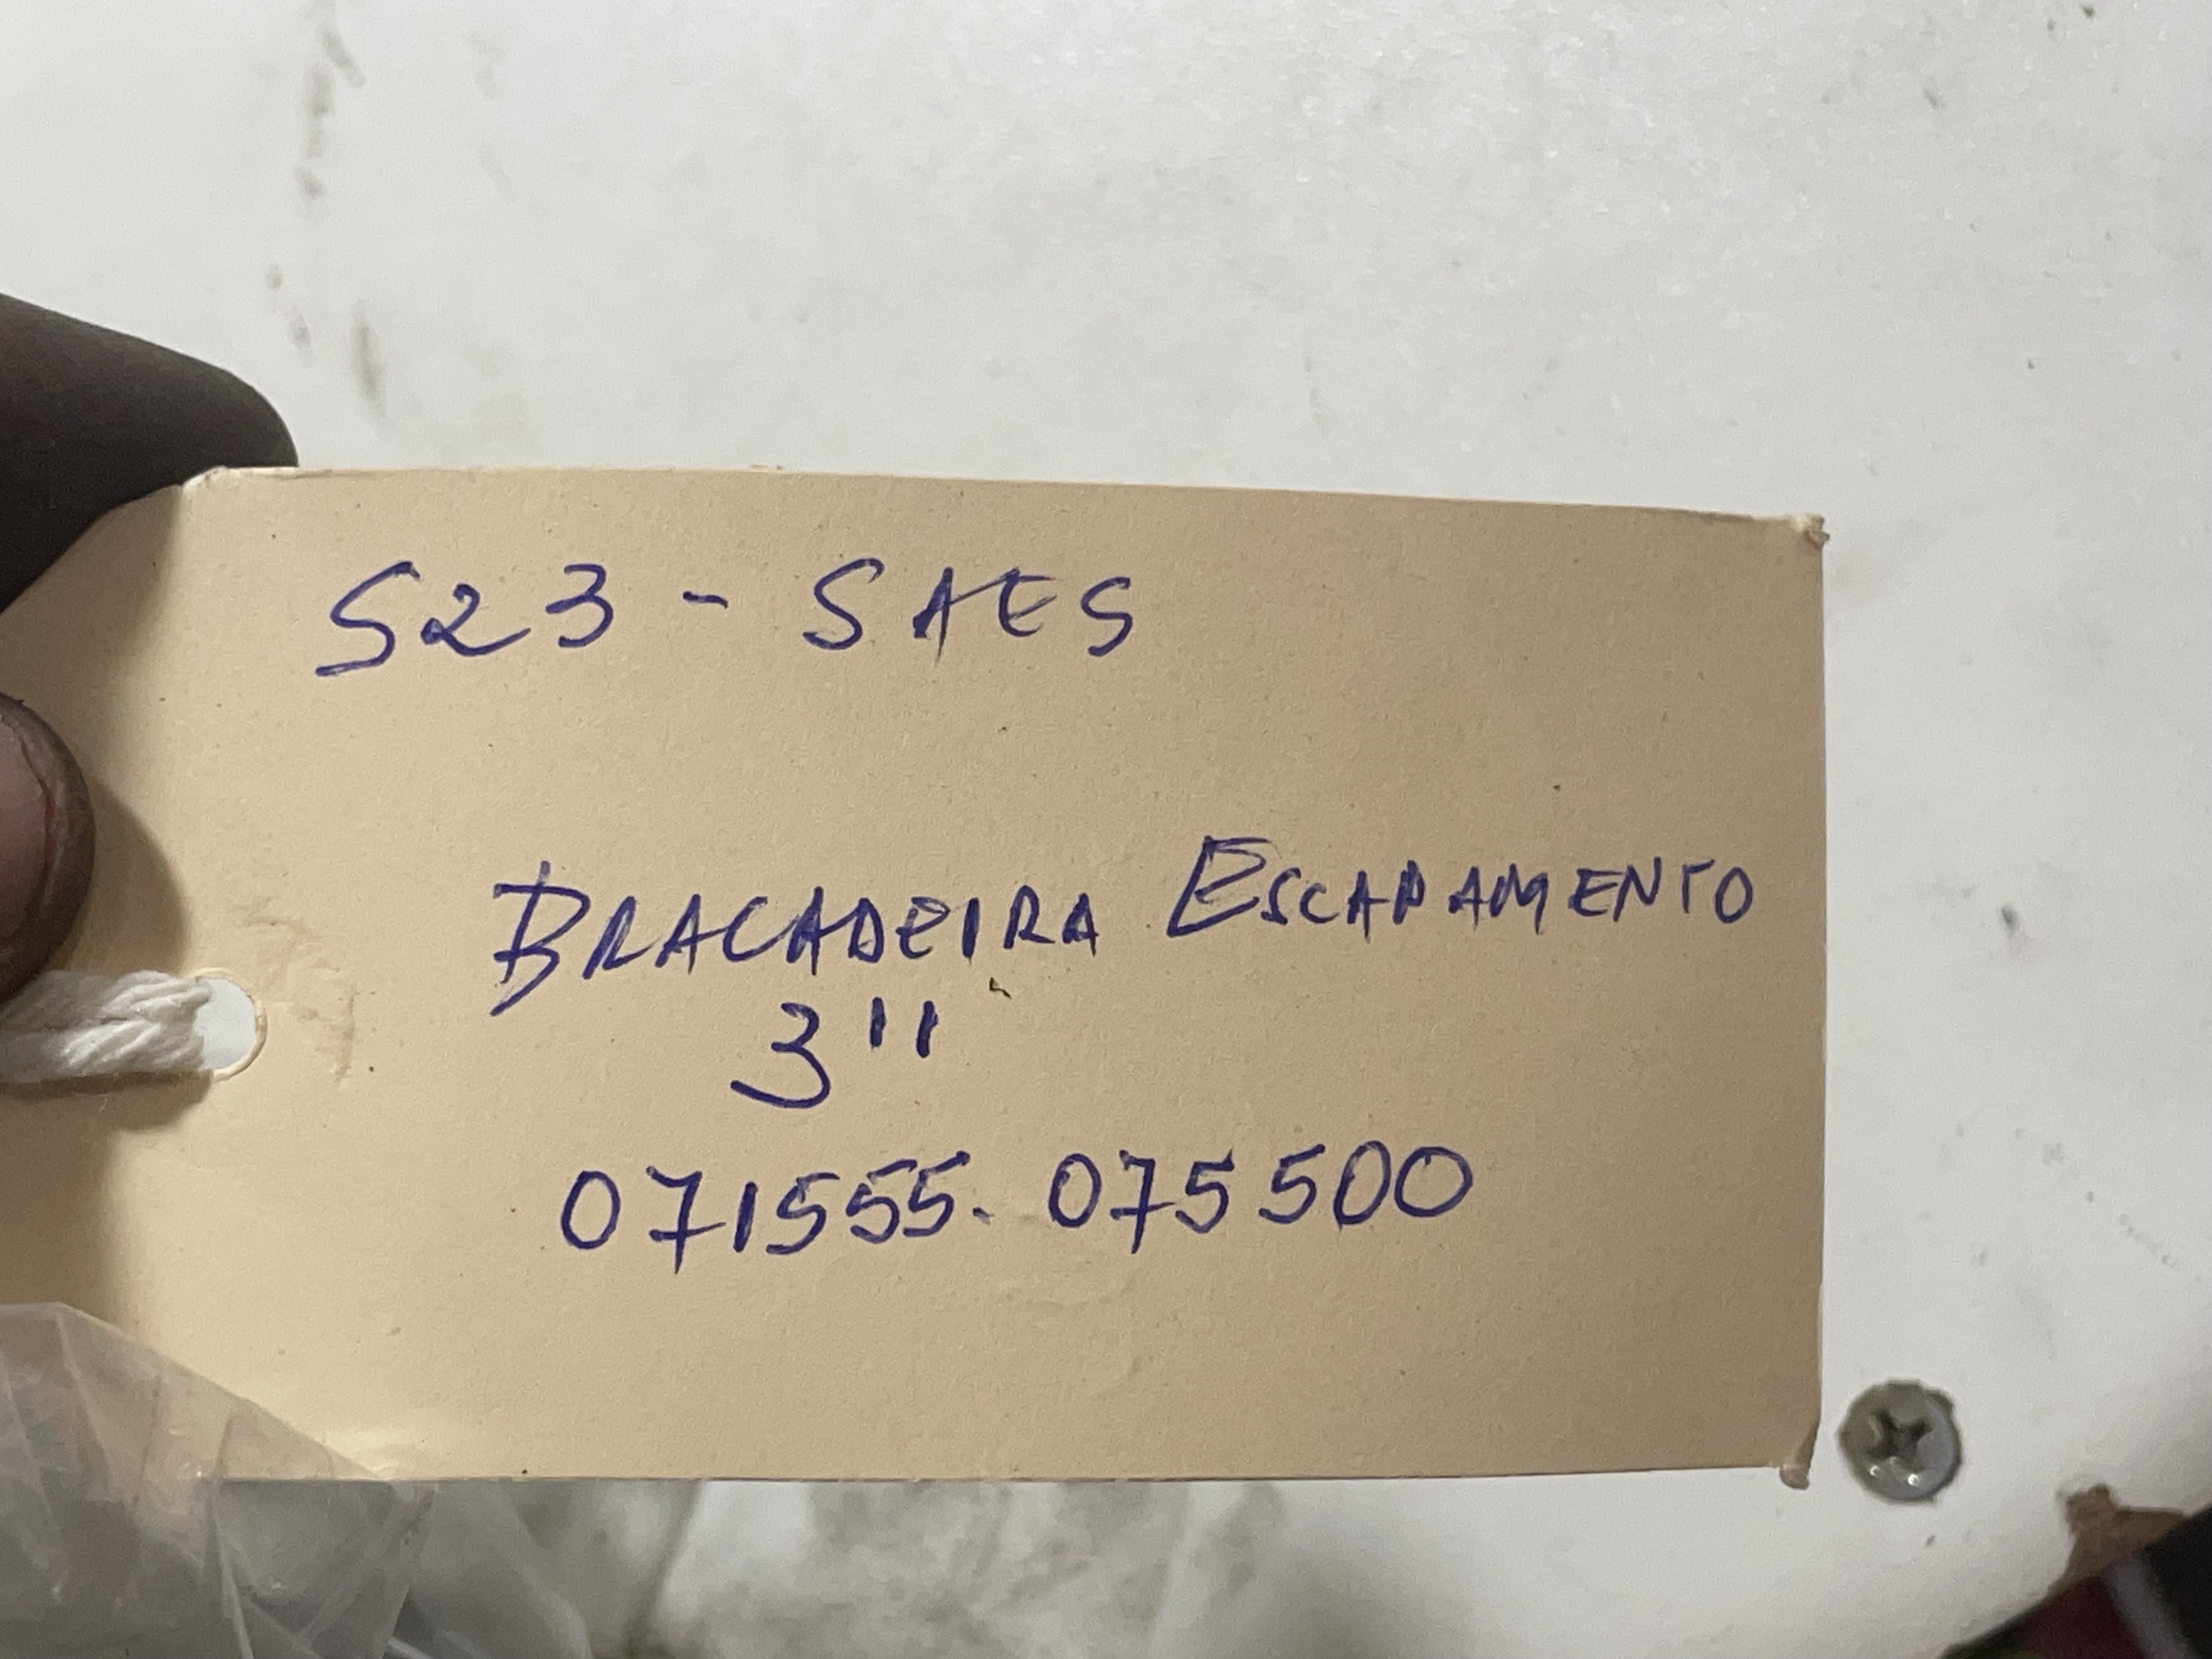 523 - SAES
BRACADEIRA ESCAPAMENTO
3"
071555.075500